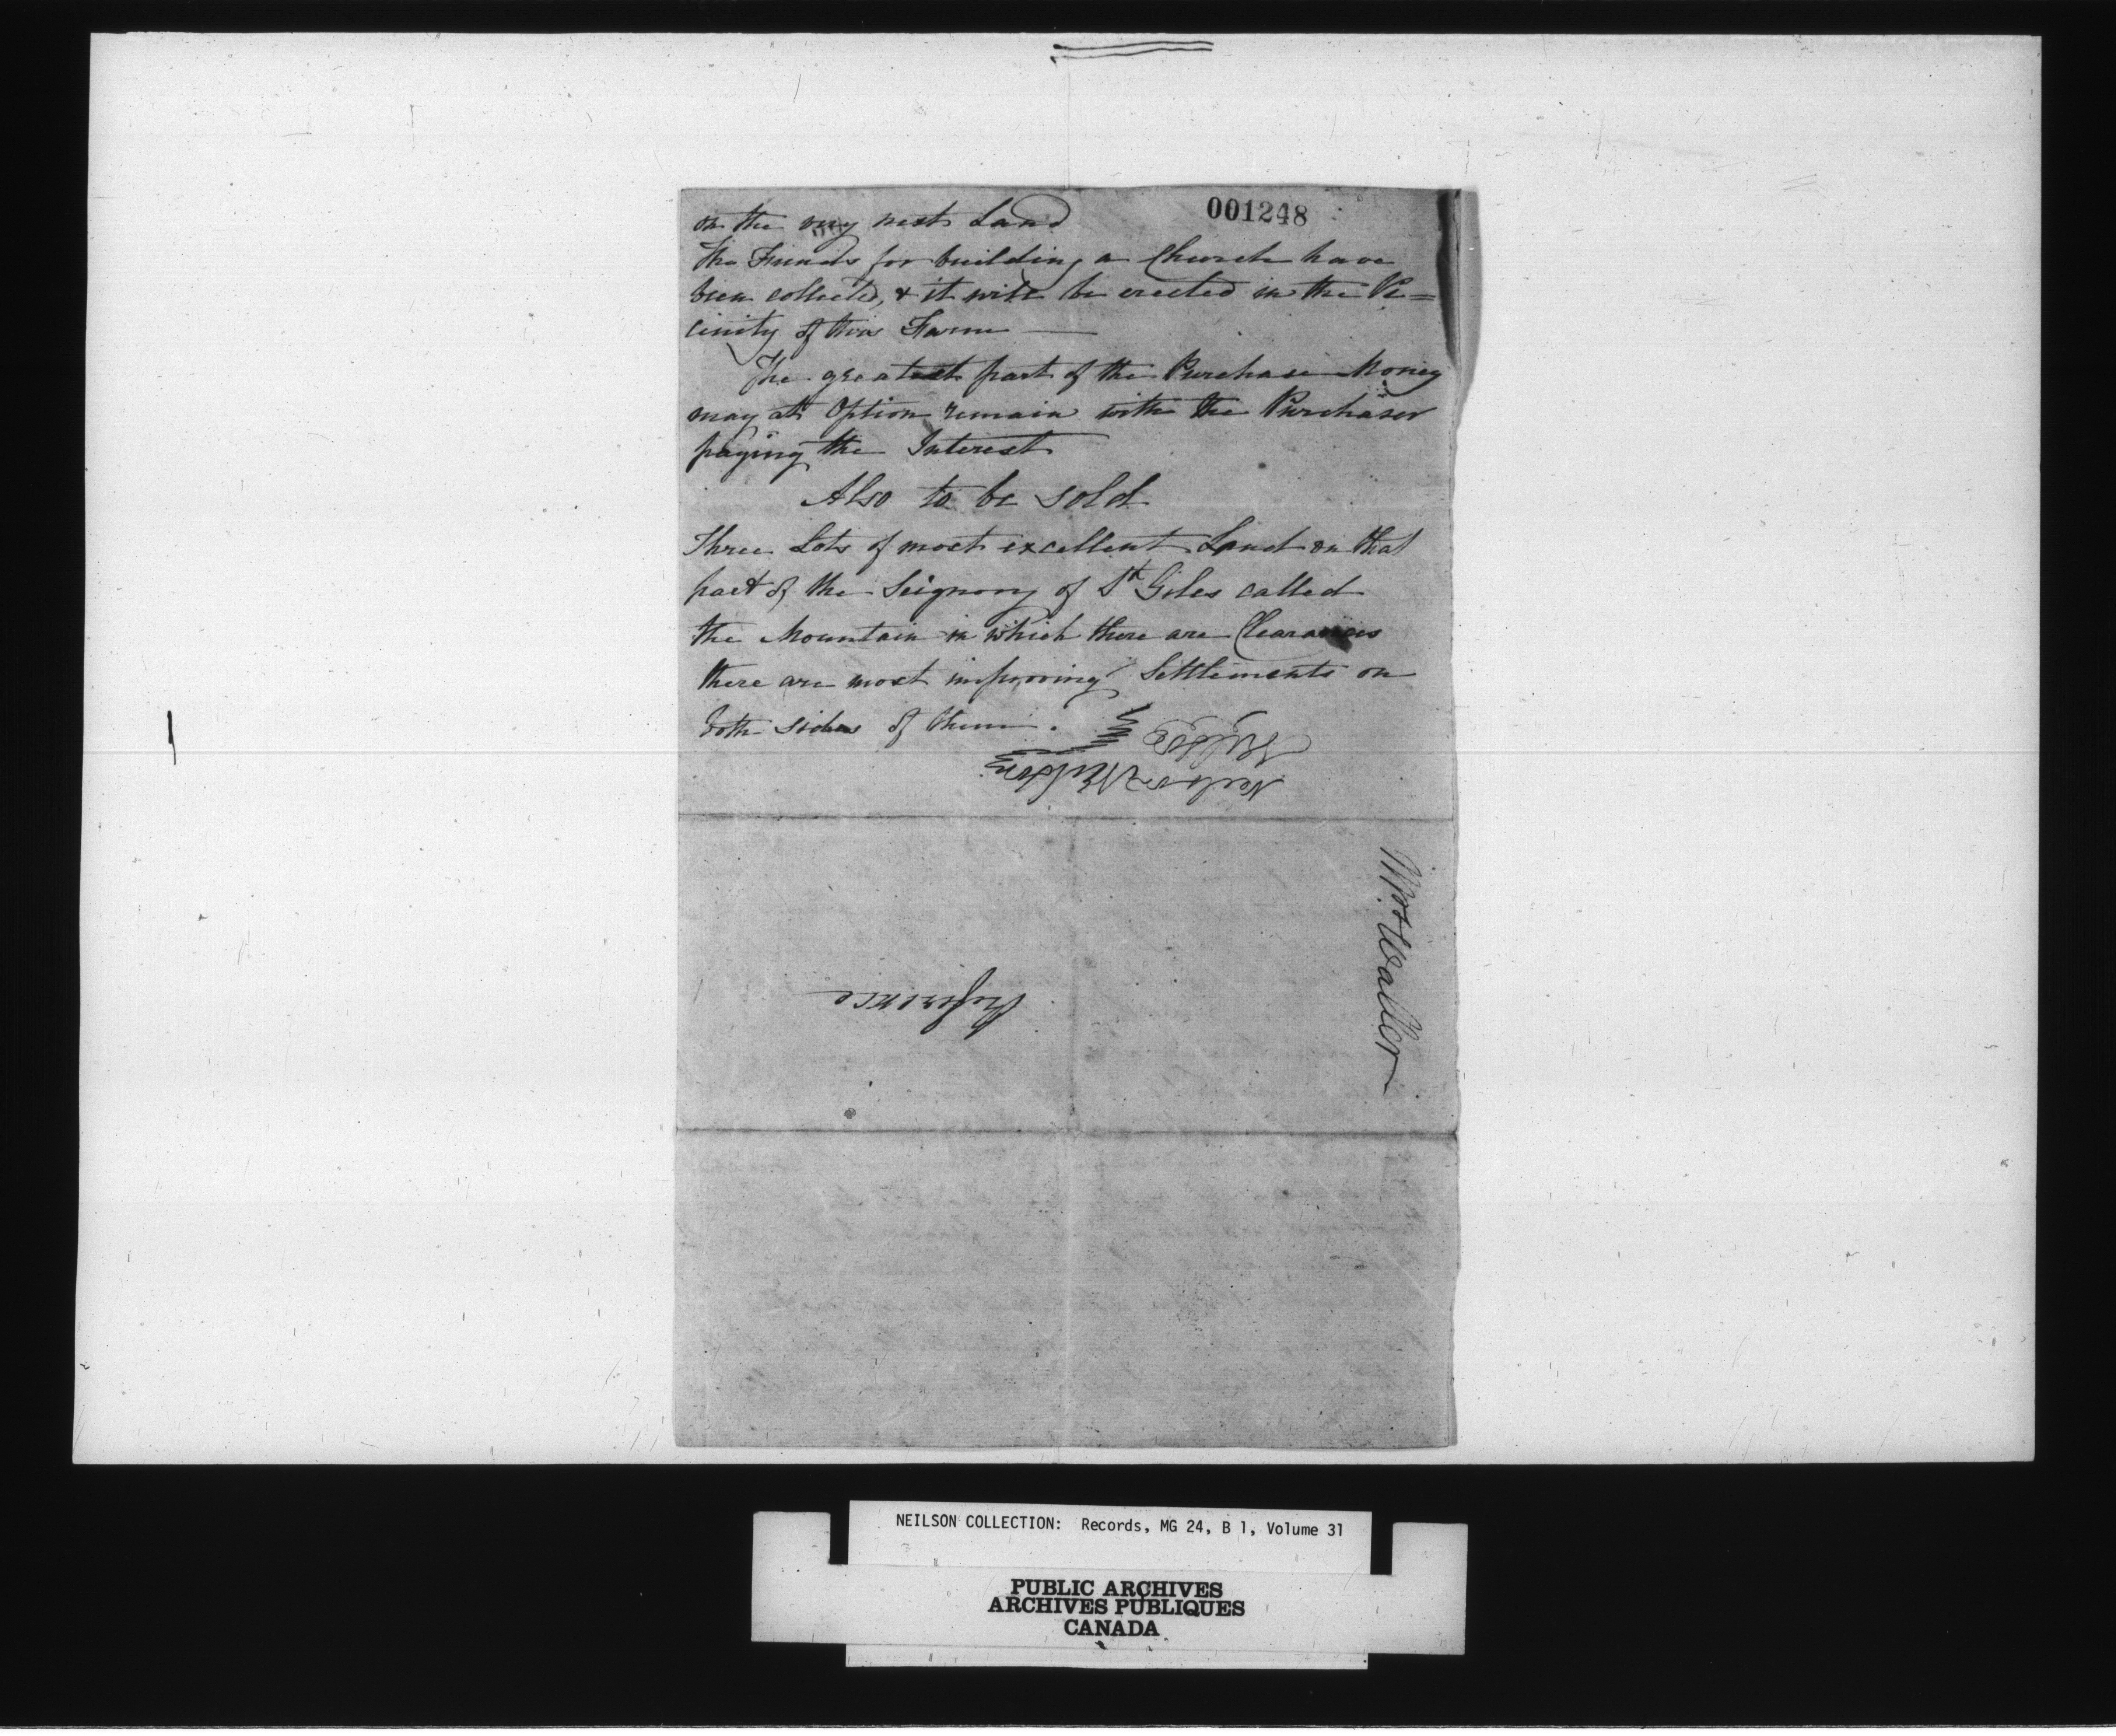 001248
on the very next Land
The Funds for building a Church have
been collected, & it will be erected in the Vi=
cinity of this Farm
The greatest part of the Purchase Money
may at Option remain with the Purchaser
paying the Interest
Also to be sold
Three Lots of most excellent Land on that
part of the Seignory of St Giles called
the Mountain in which there are Clearances
there are most improving Settlements on
both sides of them.
Neilson
Neilson Neilson
Mr. Waller
Reference
NEILSON COLLECTION: Records, MG 24, B 1, Volume 31
PUBLIC ARCHIVES
ARCHIVES PUBLIQUES
CANADA